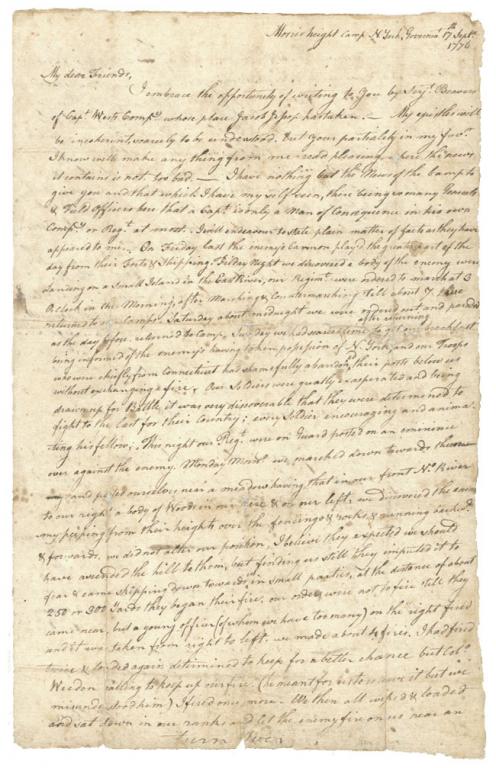 Morris height Camp N York, Governmt 17th Septr
1776
My dear Friends,
I embrace the opportunity of writing to you by Serjt. Bowers
of Capt Wests Compy whose place Jacob Jessop has taken. — My epistles will
be incoherent, scarcely to be understood. But your partiality in my favr.
I know will make any thing from me read pleasing — the news
it contains is not too bad. — I have nothing but the News of the Camp to
give you and that which I have my self seen, there being so many Generals
& Field Officers here that a Capt. is only a Man of Consequence in his own
Compy or Regt. at most. I will endeavour to state plain matter of facts as they have
appeared to me. On Friday last the enemy's Cannon play'd the greatest part of the
day from their Forts & Shipping. Friday Night we discovered a body of the enemy were
landing on a Small Island in the East River, our Regimt. were ordered to march at 3
O Clock in the Morning, after Marching & Countermarching till about 7 have
returned to Camp. Saturday about midnight we were ordered out and paraded
as the day before. returned to Camp, Sunday we had scarce time to get our breakfast
being informed of the enemy's having taken possession of N. York, and our Troops
who were chiefly from Connecticut had shamefully abandond their posts below us
without exchanging a fire. Our Soldiers were greatly exasperated and being
drawn up for Battle, it was very discoverable that they were determined to
fight to the last for their Country; every Soldier encouraging and anima-
ting his fellow; This night our Reg. were on Guard posted on an eminence
over against the enemy. Monday Morng. we marched down towards them
and posted ourselves near a meadow having that in our front, No. River
to our right a body of Woods in our rear & on our left; we discovered the ene-
my peeping from their heights over the fencings & rocks & running backwd
& forwards. we did not alter our position. I believe they expected we should
have ascended the hill to them, but finding us still they imputed it to
fear & came skipping down towards in small parties, at the distance of about
250 or 300 Yards they began their fire, our orders were not to fire till they
came near, but a young officer (of whom we have too many) on the right fired
and it was taken from right to left. we made about 4 fires, I had fired
twice & loaded again determined to keep for a better chance but Col.
Weedon calling to keep up our fire (he meant for us to reserve it but we
misunderstood him) I fired once more. We then all wiped & loaded
and sat down in our ranks and let the enemy fire on us near an
turn over